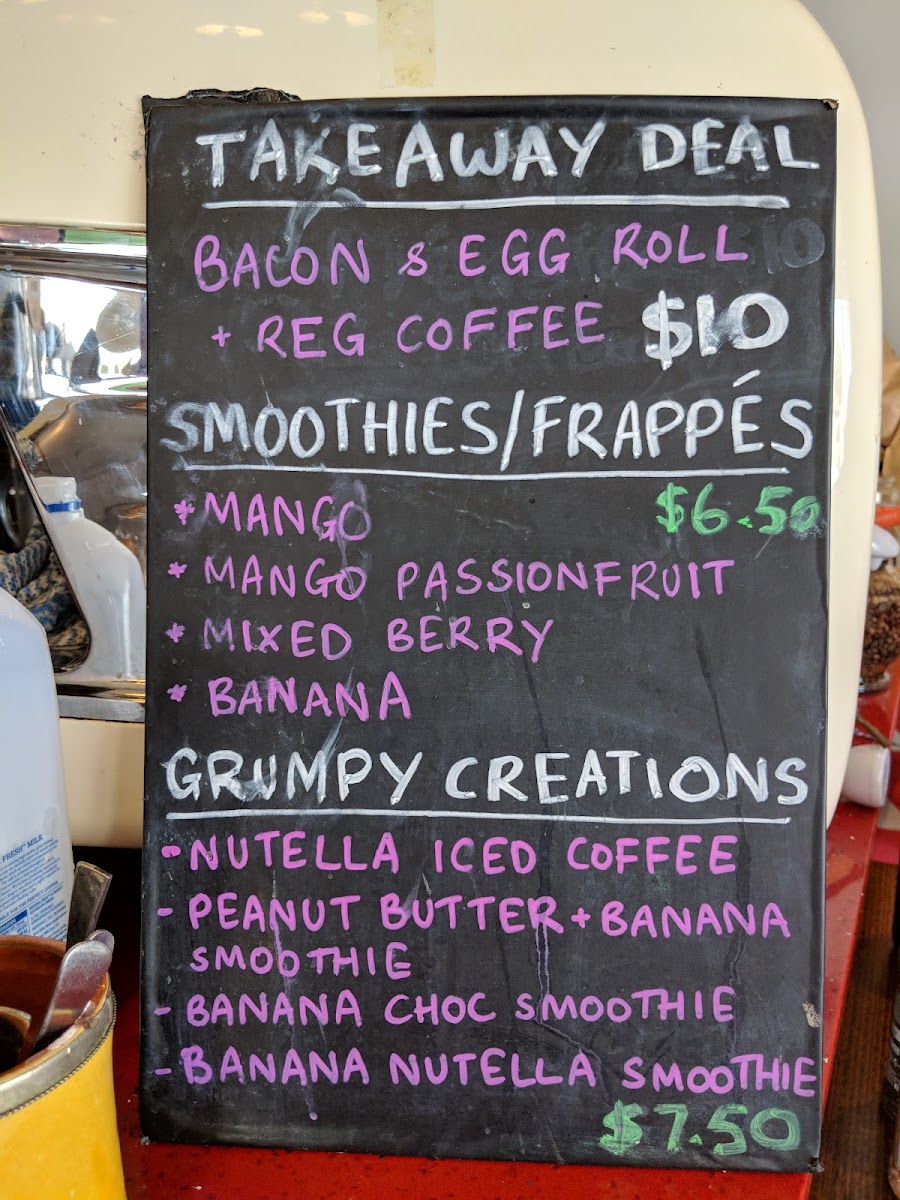 TAKEAWAY DEAL
BACON & EGG ROLL
+ REG COFFEE $10
SMOOTHIES/FRAPPÉS
* MANGO $6.50
* MANGO PASSIONFRUIT
* MIXED BERRY
* BANANA
GRUMPY CREATIONS
- NUTELLA ICED COFFEE
- PEANUT BUTTER + BANANA
SMOOTHIE
- BANANA CHOC SMOOTHIE
- BANANA NUTELLA SMOOTHIE
$7.50
FRESH™ MILK